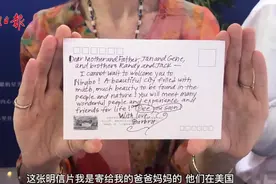 日报
Dear Mother and Father, Jan and Gene,
and brothers Randy and Jack —
I cannot wait to welcome you to
Ningbo! A beautiful city filled with
much beauty to be found in the
people and nature! You will meet many
wonderful people and experience and
friends for life! Love you soon!
With love,
这张明信片我是寄给我的爸爸妈妈的 他们在美国